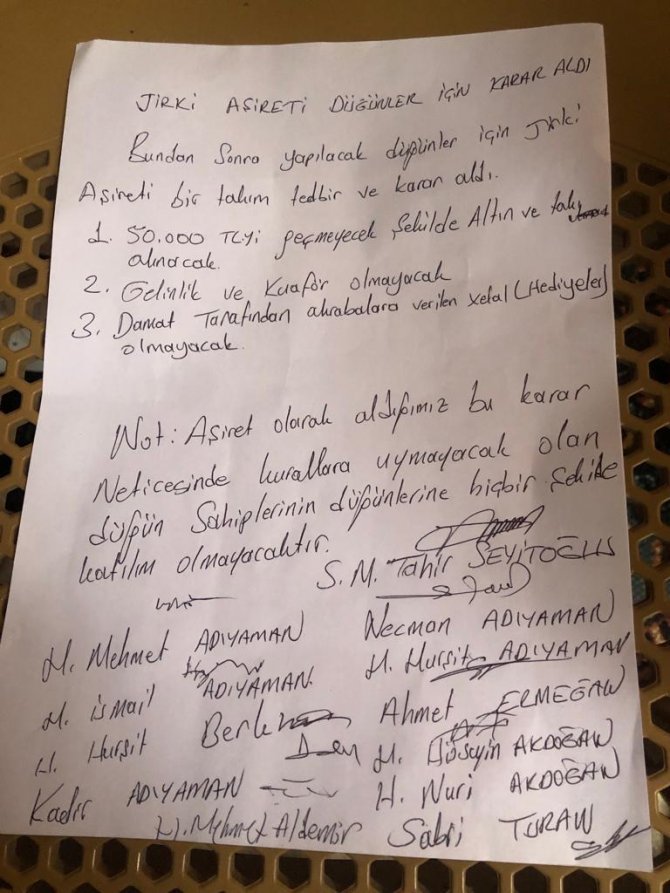 JİRKİ AŞİRETİ DÜĞÜNLER İÇİN KARAR ALDI
Bundan Sonra yapılacak düğünler için Jirki
Aşireti bir takım tedbir ve karar aldı.
1. 50.000 TLyi geçmeyecek Şekilde Altın ve takı
alınacak.
2. Gelinlik ve Kuaför olmayacak
3. Damat Tarafından akrabalara verilen xelat (Hediyeler)
olmayacak.
Not: Aşiret olarak aldığımız bu karar
Neticesinde kurallara uymayacak olan
düğün Sahiplerinin düğünlerine hiçbir Şekilde
katılım olmayacaktır.
S. M. Tahir SEYİTOĞLU
H. Mehmet ADIYAMAN Necman ADIYAMAN
H. İsmail ADIYAMAN H. Hurşit ADIYAMAN
H. Hurşit Ahmet ERMEĞAN
H. Hüseyin AKDOĞAN
Kadir ADIYAMAN H. Nuri AKDOĞAN
H. Mehmet Aldemir Sabri TURAN